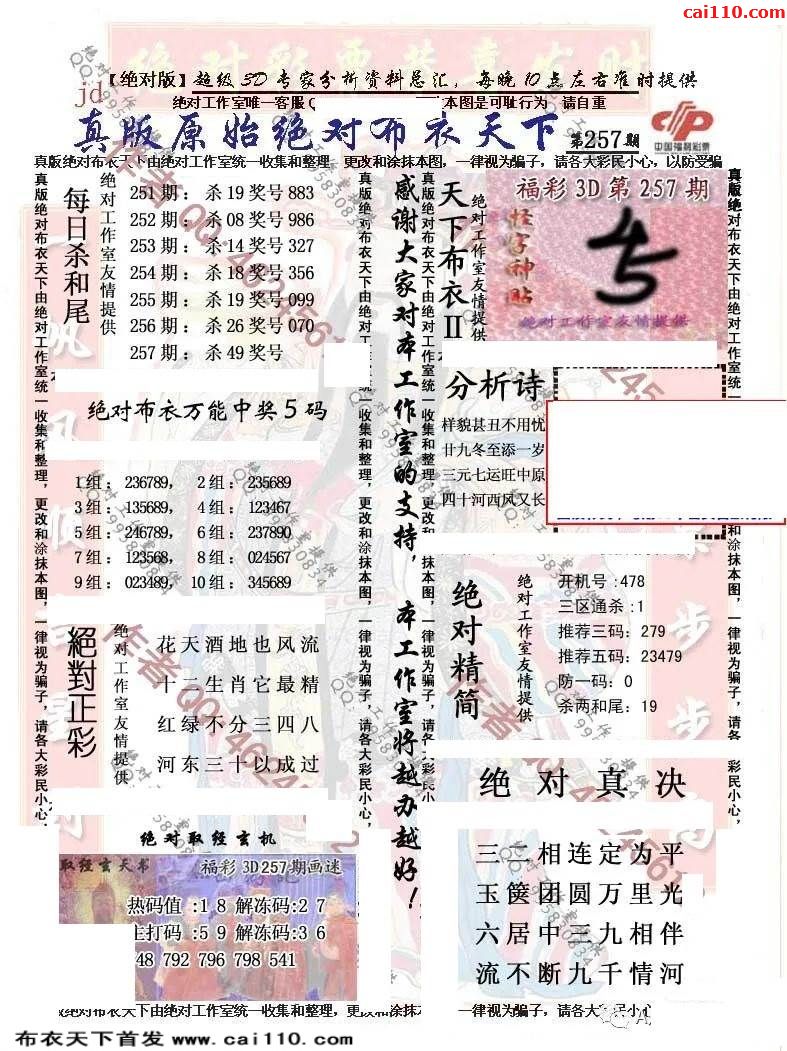 cai110.com
【绝对版】超级3D专家分析资料总汇，每晚10点左右准时提供
jd
绝对工作室唯一客服Q
本图是可耻行为 请自重
真版原始绝对布衣天下
第257期
中国福利彩票
真版绝对布衣天下由绝对工作室统一收集和整理，更改和涂抹本图，一律视为骗子，请各大彩民小心，以防受骗
每日杀和尾
绝对工作室友情提供
251期：杀19奖号883
252期：杀08奖号986
253期：杀14奖号327
254期：杀18奖号356
255期：杀19奖号099
256期：杀26奖号070
257期：杀49奖号
绝对布衣万能中奖5码
1组：236789， 2组：235689
3组：135689， 4组：123467
5组：246789， 6组：237890
7组：123568， 8组：024567
9组：023489， 10组：345689
絕對正彩
绝对工作室友情提供
花天酒地也风流
十二生肖它最精
红绿不分三四八
河东三十以成过
绝对取经玄机
取经玄天书
福彩3D257期画迷
热码值:18 解冻码:27
主打码:59 解冻码:36
48 792 796 798 541
感谢大家对本工作室的支持，本工作室将越办越好！
天下布衣II
绝对工作室友情提供
福彩3D第257期
怪字神贴
绝对工作室友情提供
分析诗
样貌甚丑不用忧
廿九冬至添一岁
三元七运旺中原
四十河西风又长
绝对精简
绝对工作室友情提供
开机号:478
三区通杀:1
推荐三码:279
推荐五码:23479
防一码:0
杀两和尾:19
绝对真决
三二相连定为平
玉箧团圆万里光
六居中三九相伴
流不断九千情河
真版绝对布衣天下由绝对工作室统一收集和整理，更改和涂抹本图，一律视为骗子，请各大彩民小心，
版绝对布衣天下由绝对工作室统一收集和整理，更改和涂抹本
一律视为骗子，请各大彩民小心
布衣天下首发 www.cai110.com